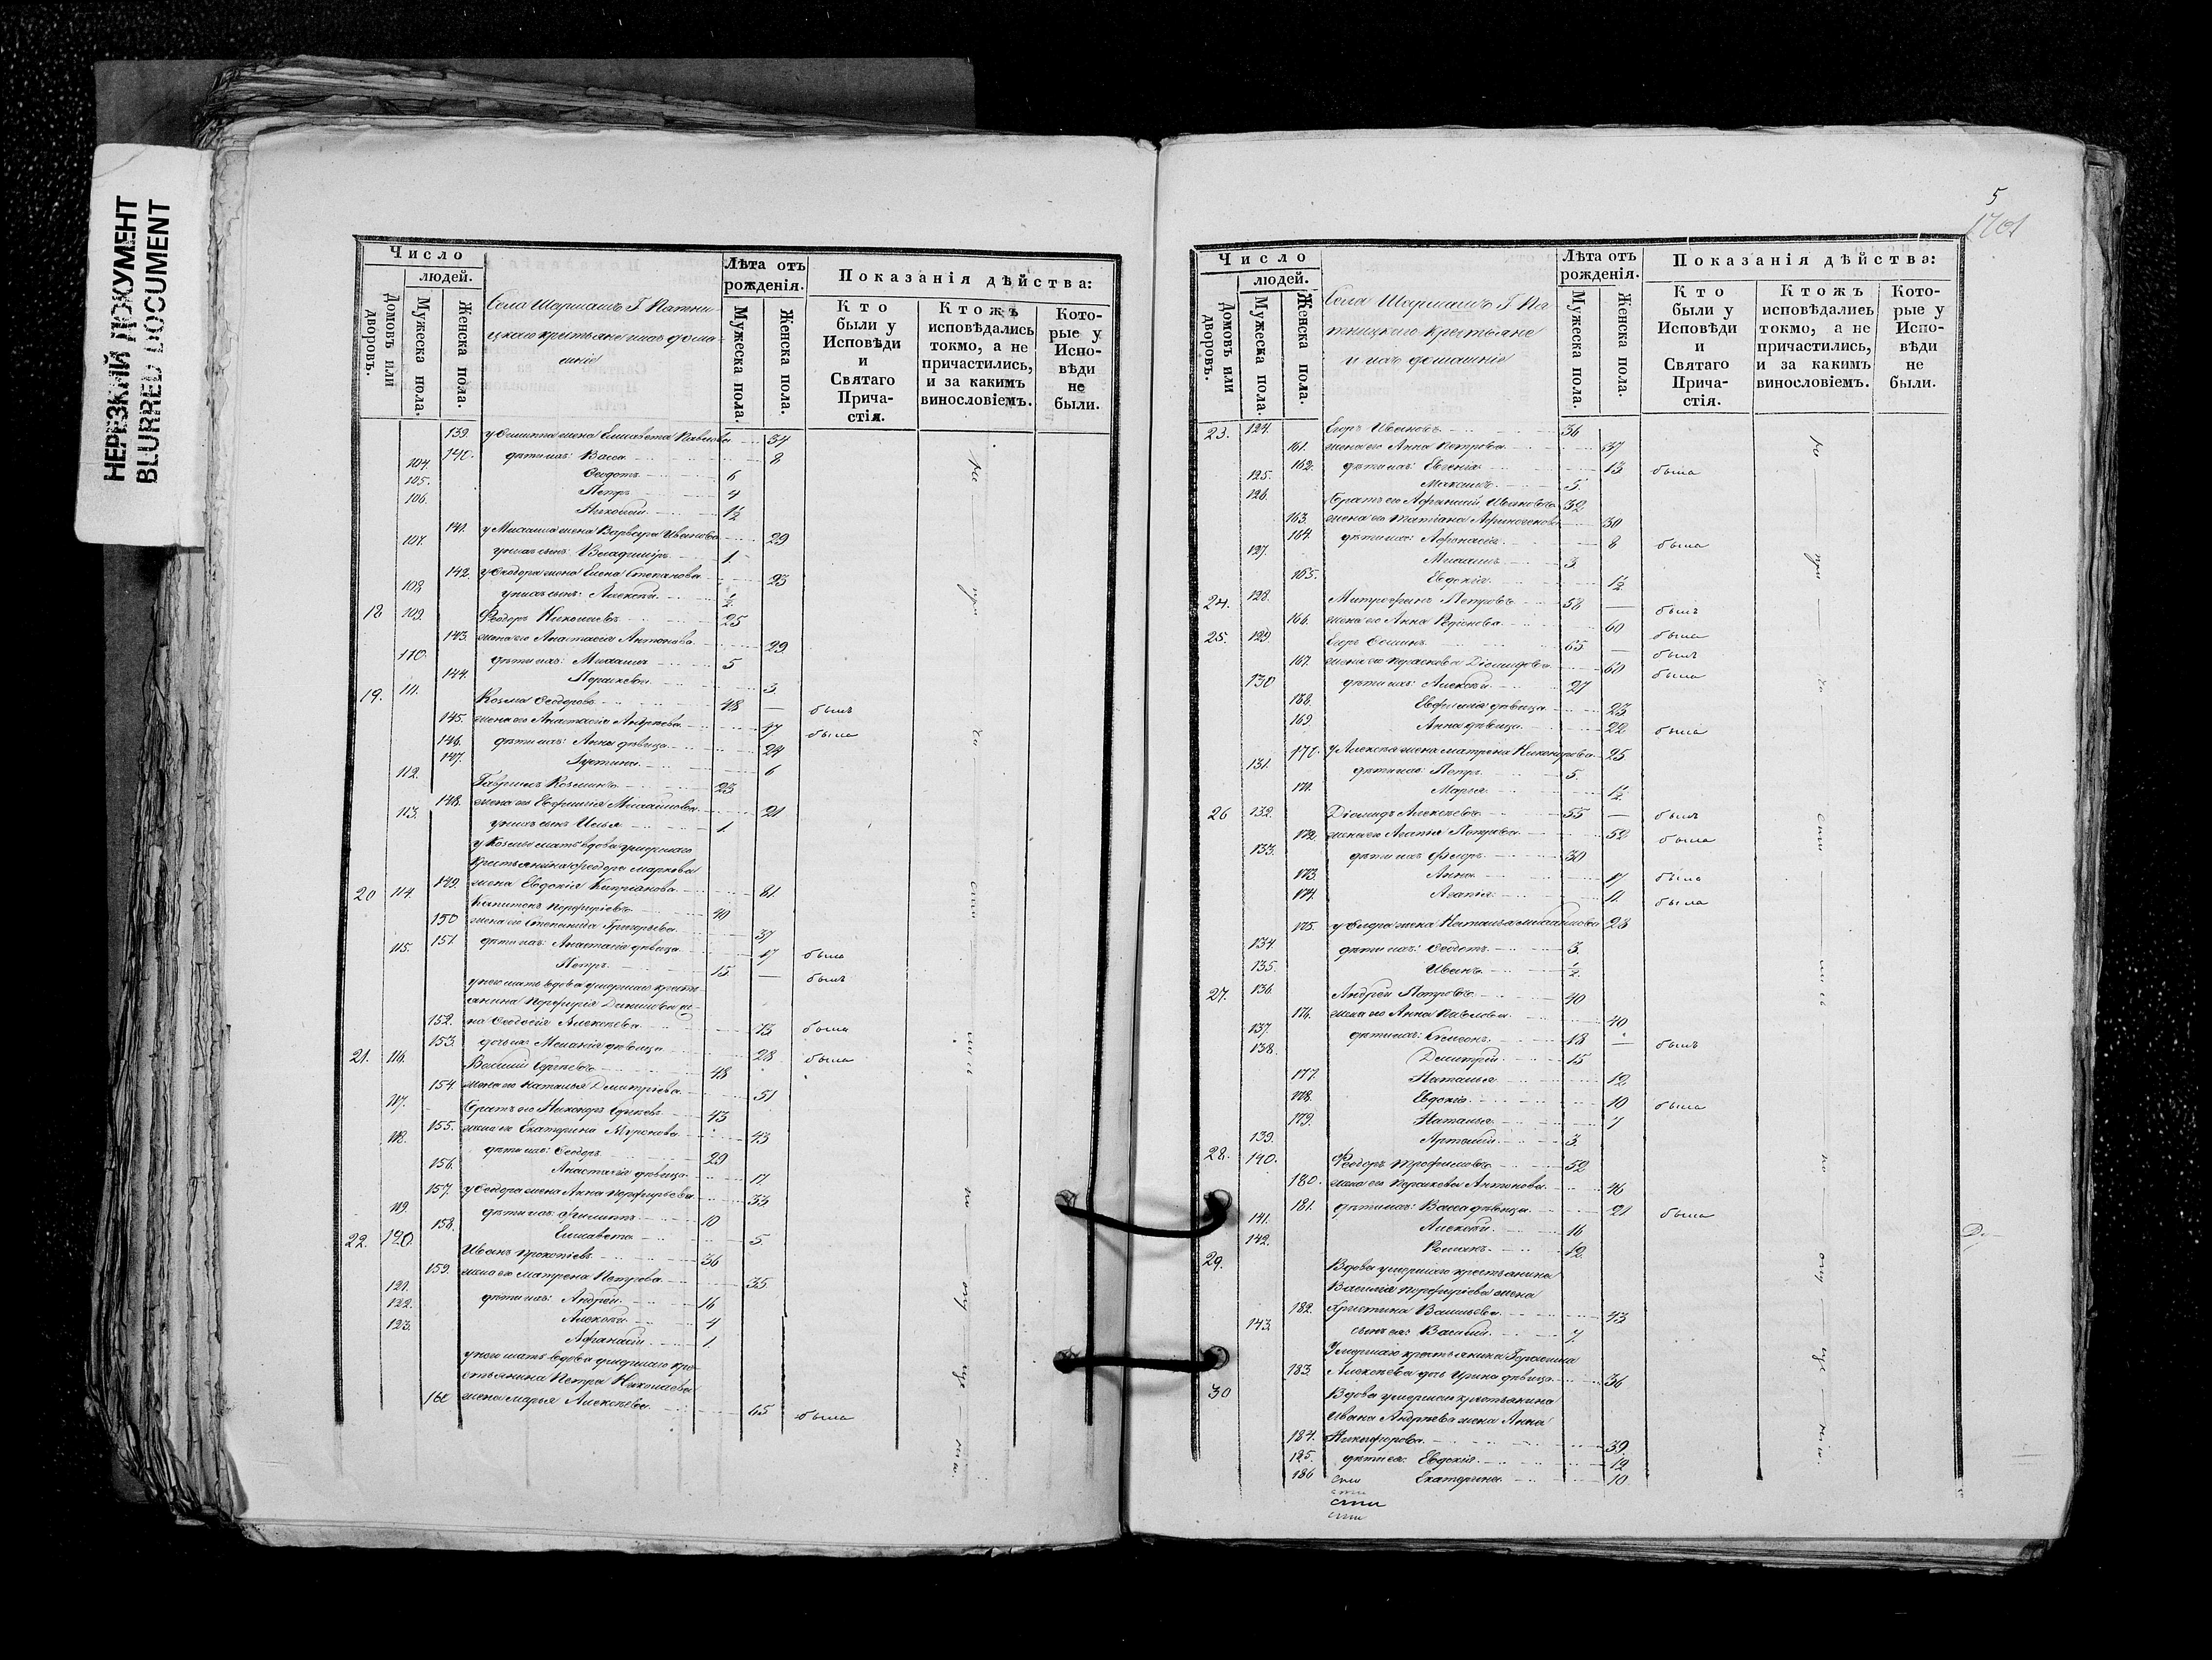 НЕРЕЗКИЙ ДОКУМЕНТ
BLURRED DOCUMENT
Число
людей.
Домовъ или дворовъ.
Мужеска пола.
Женска пола.
Села Г. Пятни-
цкаго крестьяне и ихъ дома-
шніе
Лѣта отъ рожденія.
Мужеска пола.
Женска пола.
Показанія дѣйства:
Кто были у Исповѣди и Святаго Прича-стія.
Ктожъ исповѣдались токмо, а не причастились, и за какимъ винословіемъ.
Кото-рые у Испо-вѣди не были.
139. у Филиппа жена Елисавета Павлова 34
140. дѣти ихъ: Васса 8
104. Феодотъ 6
105. Петръ 4
106. Николай 1½
141. у Михаила жена Варвара Иванова 29
107. у нихъ сынъ: Владиміръ 1.
142. у Феодора жена Елена Степанова 23
108 у нихъ сынъ: Алексѣй ½
18 109. Феодоръ Николаевъ 25
143. жена его Анастасія Антонова 29
110. дѣти ихъ: Михаилъ 5
144. Параскева 3.
19. 111. Козма Феодоровъ 48 — былъ
145. жена его Анастасія Андреева 47 была
146. дѣти ихъ: Анна дѣвица 24
147. Іустина 6
112. Гавріилъ Козминъ 23
148. жена его Евфимія Михайлова 21
113. у нихъ сынъ Илья 1.
у Козмы мать вдова умершаго
крестьянина Феодора Маркова
149. жена Евдокія Кипріанова 81.
20 114. Капитонъ Порфиріевъ 40
150 жена его Степанида Григорьева 37
151. дѣти ихъ: Анастасія дѣвица 17 была
115. Петръ 15 — былъ
у него мать вдова умершаго кресть-
янина Порфирія Данилова же-
152. на Феодосія Алексѣева 73 была
153. дочь ихъ: Меланія дѣвица 28 была
21. 116. Василій Сергѣевъ 48
154. жена его Наталья Димитріева 51
117. братъ его Никаноръ Сергѣевъ 43
155. жена его Екатерина Миронова 43
118. дѣти ихъ: Феодоръ 29
156. Анастасія дѣвица 17
157. у Феодора жена Анна Порфирьева 33
119. дѣти ихъ: Филиппъ 10
158. Елисавета 5.
22. 120. Иванъ Прокопіевъ 36
159. жена его Матрена Петрова 35
121. дѣти ихъ: Андрей 16
122. Алексѣй 4
123. Афанасій 1.
у него мать вдова умершаго кре-
стьянина Петра Николаева
160 жена Марья Алексѣева 65 была
Не при ча сти ли сь по отлу че нію.
5
1701
Число
людей.
Домовъ или дворовъ.
Мужеска пола.
Женска пола.
Села Г. Пя-
тницкаго крестьяне
и ихъ домашніе
Лѣта отъ рожденія.
Мужеска пола.
Женска пола.
Показанія дѣйства:
Кто были у Исповѣди и Святаго Прича-стія.
Ктожъ исповѣдались токмо, а не причастились, и за какимъ винословіемъ.
Кото-рые у Испо-вѣди не были.
23. 124. Егоръ Ивановъ 36
161. жена его Анна Петрова 37
162. дѣти ихъ: Евгенія 13 была
125. Максимъ 5.
126. братъ его Афанасій Ивановъ 32
163. жена его Татіана 30
164. дѣти ихъ: Афанасія 8 была
127. Михаилъ 3.
165. Евдокія 1½
24. 128. Митрофанъ Петровъ 58 — былъ
166. жена его Анна Родіонова 60 была
25. 129. Егоръ Фоминъ 65 — былъ
167. жена его Параскева Діомидова 60 была
130 дѣти ихъ: Алексѣй 27
168. Евфимія дѣвица 23
169. Анна дѣвица 22 была
170. у Алексѣя жена Матрена Никанорова 25
131. дѣти ихъ: Петръ 5.
171. Марья 1½
26 132. Діомидъ Алексѣевъ 55 — былъ
172. жена его Агапія Петрова 52 была
133. дѣти ихъ 30
173. Анна 17 была
174. Агапія 11. была
175. жена Наталья Михайлова 28
134. дѣти ихъ: Феодотъ 3
135. Иванъ ½
27. 136. Андрей Петровъ 40
176. жена его Анна Павлова 40
137. дѣти ихъ: Симеонъ 18 — былъ
138. Димитрій 15
177. Наталья 12
178. Евдокія 10 была
179. Наталья 7
139. Артемій 3.
28. 140. Феодоръ Трофимовъ 52
180. жена его Параскева Антонова 46
181. дѣти ихъ: Васса дѣвица 21 была
141. Алексѣй 16
142. Романъ 12
29. Вдова умершаго крестьянина
Василія Порфиріева жена
182. Христина Васильева 43
143. сынъ ея: Василій 7.
Умершаго крестьянина Герасима
183. Алексѣева дочь Ирина дѣвица 36
30 Вдова умершаго крестьянина
Ивана Андреева жена Анна
184. Никифорова 39.
185. дѣти ея: Евдокія 12
186 Екатерина 10.
Не при ча сти ли сь по отлу че нію.
сти
сти
сти
сти